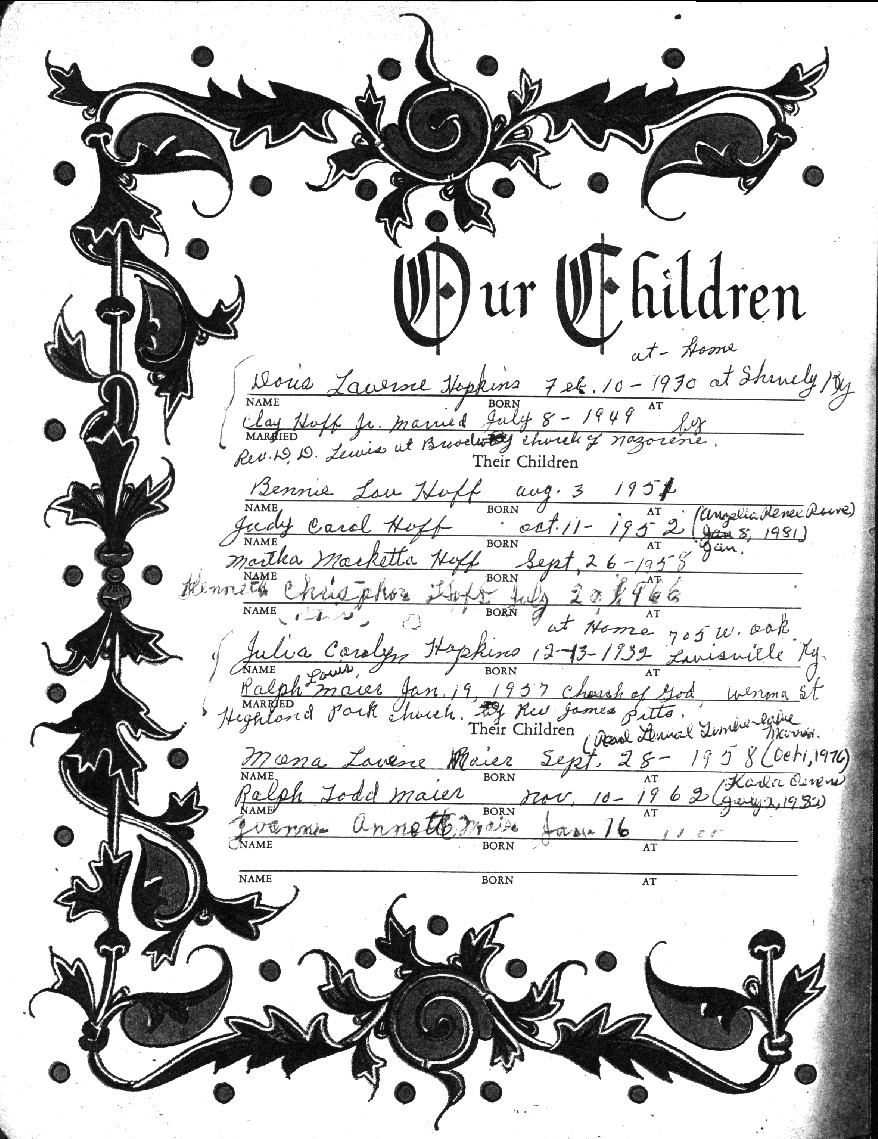 Our Children
at - Home
Doris Laverne Hopkins Feb. 10 - 1930 at Shively Ky
NAME BORN AT
Clay Hoff Jr. Married July 8 - 1949 by
MARRIED
Rev. D. D. Lewis at Broadway church of Nazorene.
Their Children
Bennie Lou Hoff aug. 3 1951
NAME BORN AT
(Angelia Renee
Judy Carol Hoff oct. 11 - 1952 Jan 8, 1981)
NAME BORN AT
Jan.
Martha Marketta Hoff Sept, 26 - 1958
NAME BORN AT
Kenneth Christpher Hoff July 1966
NAME BORN AT
at Home 705 W. oak
Julia Carolyn Hopkins 12-13-1932 Louisville Ky.
NAME BORN AT
Louis
Ralph Maier Jan. 19, 1957 Church of God, wenona St
MARRIED
Highland Park Church. by Rev James Pitts.
Their Children
Mona Lavene Maier Sept. 28 - 1958 (Oct 1, 1976)
NAME BORN AT
Karla Owens
Ralph Todd Maier nov, 10 - 1962 1982)
NAME BORN AT
Yvonne Annette Maier Jan. 16
NAME BORN AT
NAME BORN AT